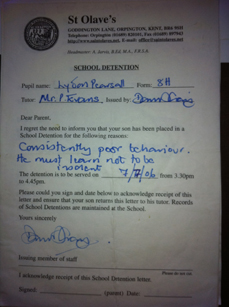 St Olave's
GODDINGTON LANE, ORPINGTON, KENT, BR6 9SH
SCHOOL DETENTION
Pupil name: Form: 8H
Tutor Mr. P. Issued by:
Dear Parent,
I regret the need to inform you that your son has been placed in a
School Detention for the following reasons:
Consistently poor behaviour.
He must learn not to be
The detention is to be served on 7/7/06 from 3.30pm
to 4.45pm.
Please could you sign and date below to acknowledge receipt of this
letter and ensure that your son returns this letter to his tutor. Records
of School Detentions are maintained at the School.
Yours sincerely
Issuing member of staff
I acknowledge receipt of this School Detention letter.
Signed: (parent) Date: